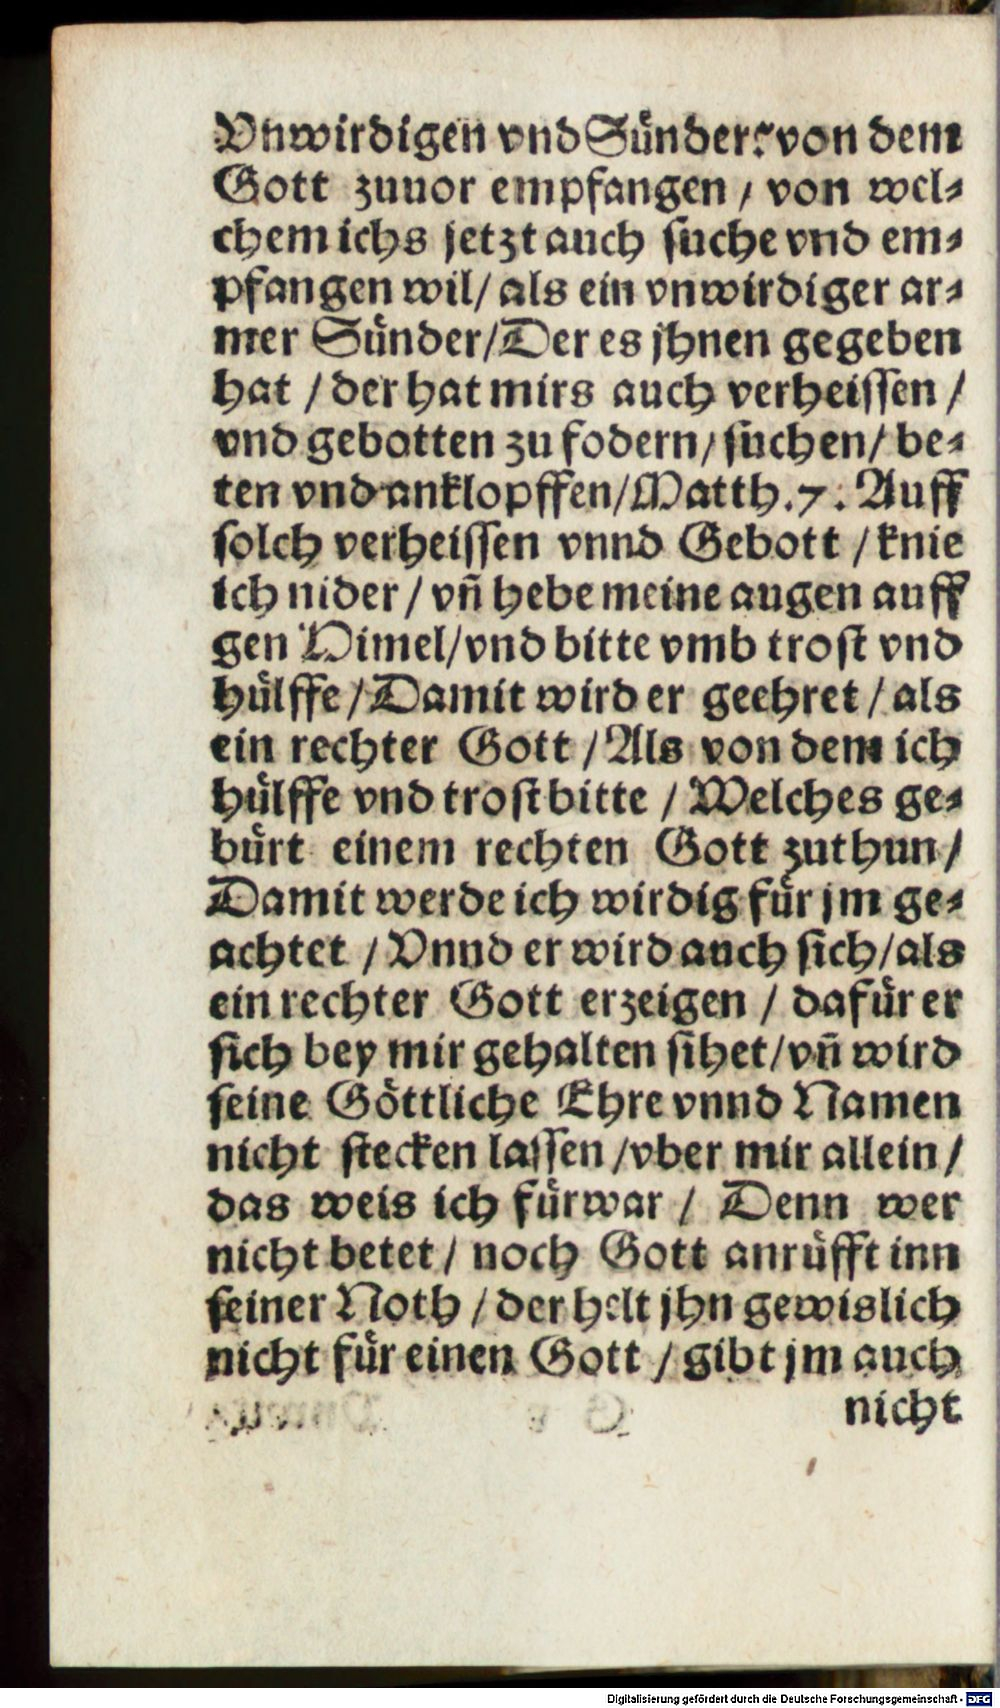 Vnwirdigen vnd Sünder: von dem
Gott zuuor empfangen / von wel⸗
chem ichs jetzt auch suche vnd em⸗
pfangen wil / als ein vnwirdiger ar⸗
mer Sünder / Der es jhnen gegeben
hat / der hat mirs auch verheissen /
vnd gebotten zu fodern / suchen / be⸗
ten vnd anklopffen / Matth. 7. Auff
solch verheissen vnnd Gebott / knie
ich nider / vñ hebe meine augen auff
gen Himel / vnd bitte vmb trost vnd
hülffe / Damit wird er geehret / als
ein rechter Gott / Als von dem ich
hülffe vnd trost bitte / Welches ge⸗
bürt einem rechten Gott zuthun /
Damit werde ich wirdig für jm ge⸗
achtet / Vnnd er wird auch sich / als
ein rechter Gott erzeigen / dafür er
sich bey mir gehalten sihet / vñ wird
seine Göttliche Ehre vnnd Namen
nicht stecken lassen / vber mir allein /
das weis ich fürwar / Denn wer
nicht betet / noch Gott anrüfft inn
seiner Noth / der helt jhn gewislich
nicht für einen Gott / gibt jm auch
nicht
Digitalisierung gefördert durch die Deutsche Forschungsgemeinschaft - DFG